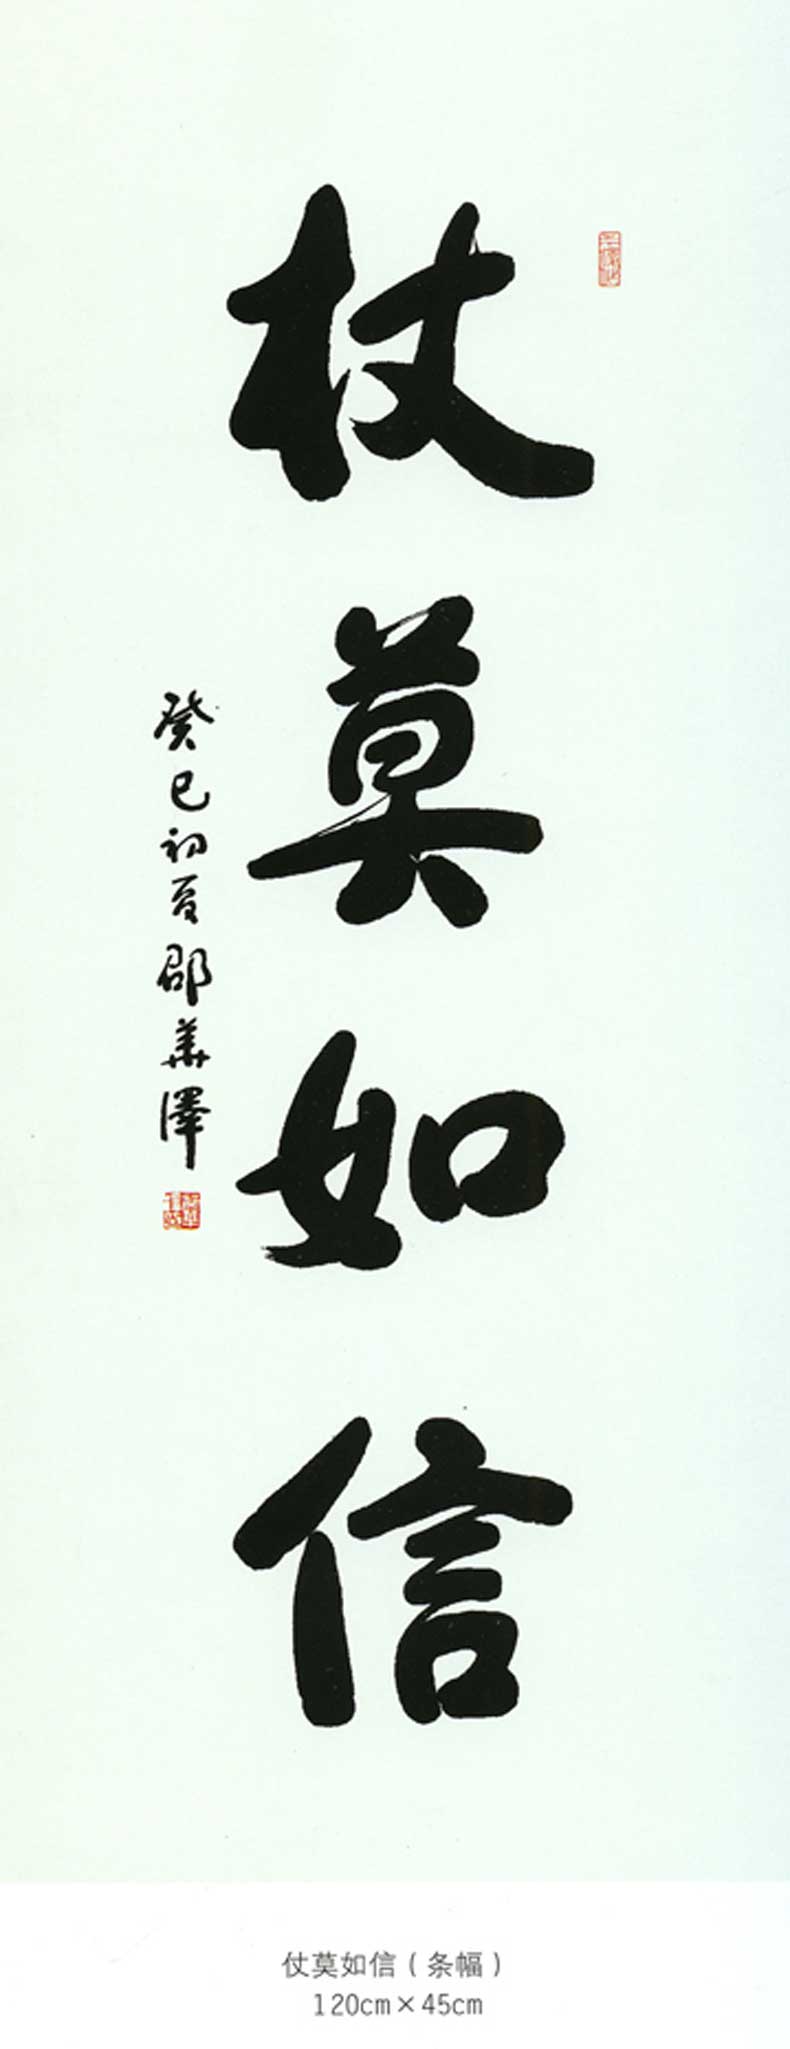 杖莫如信
癸巳初夏邵華澤
仗莫如信（条幅）
120cm×45cm